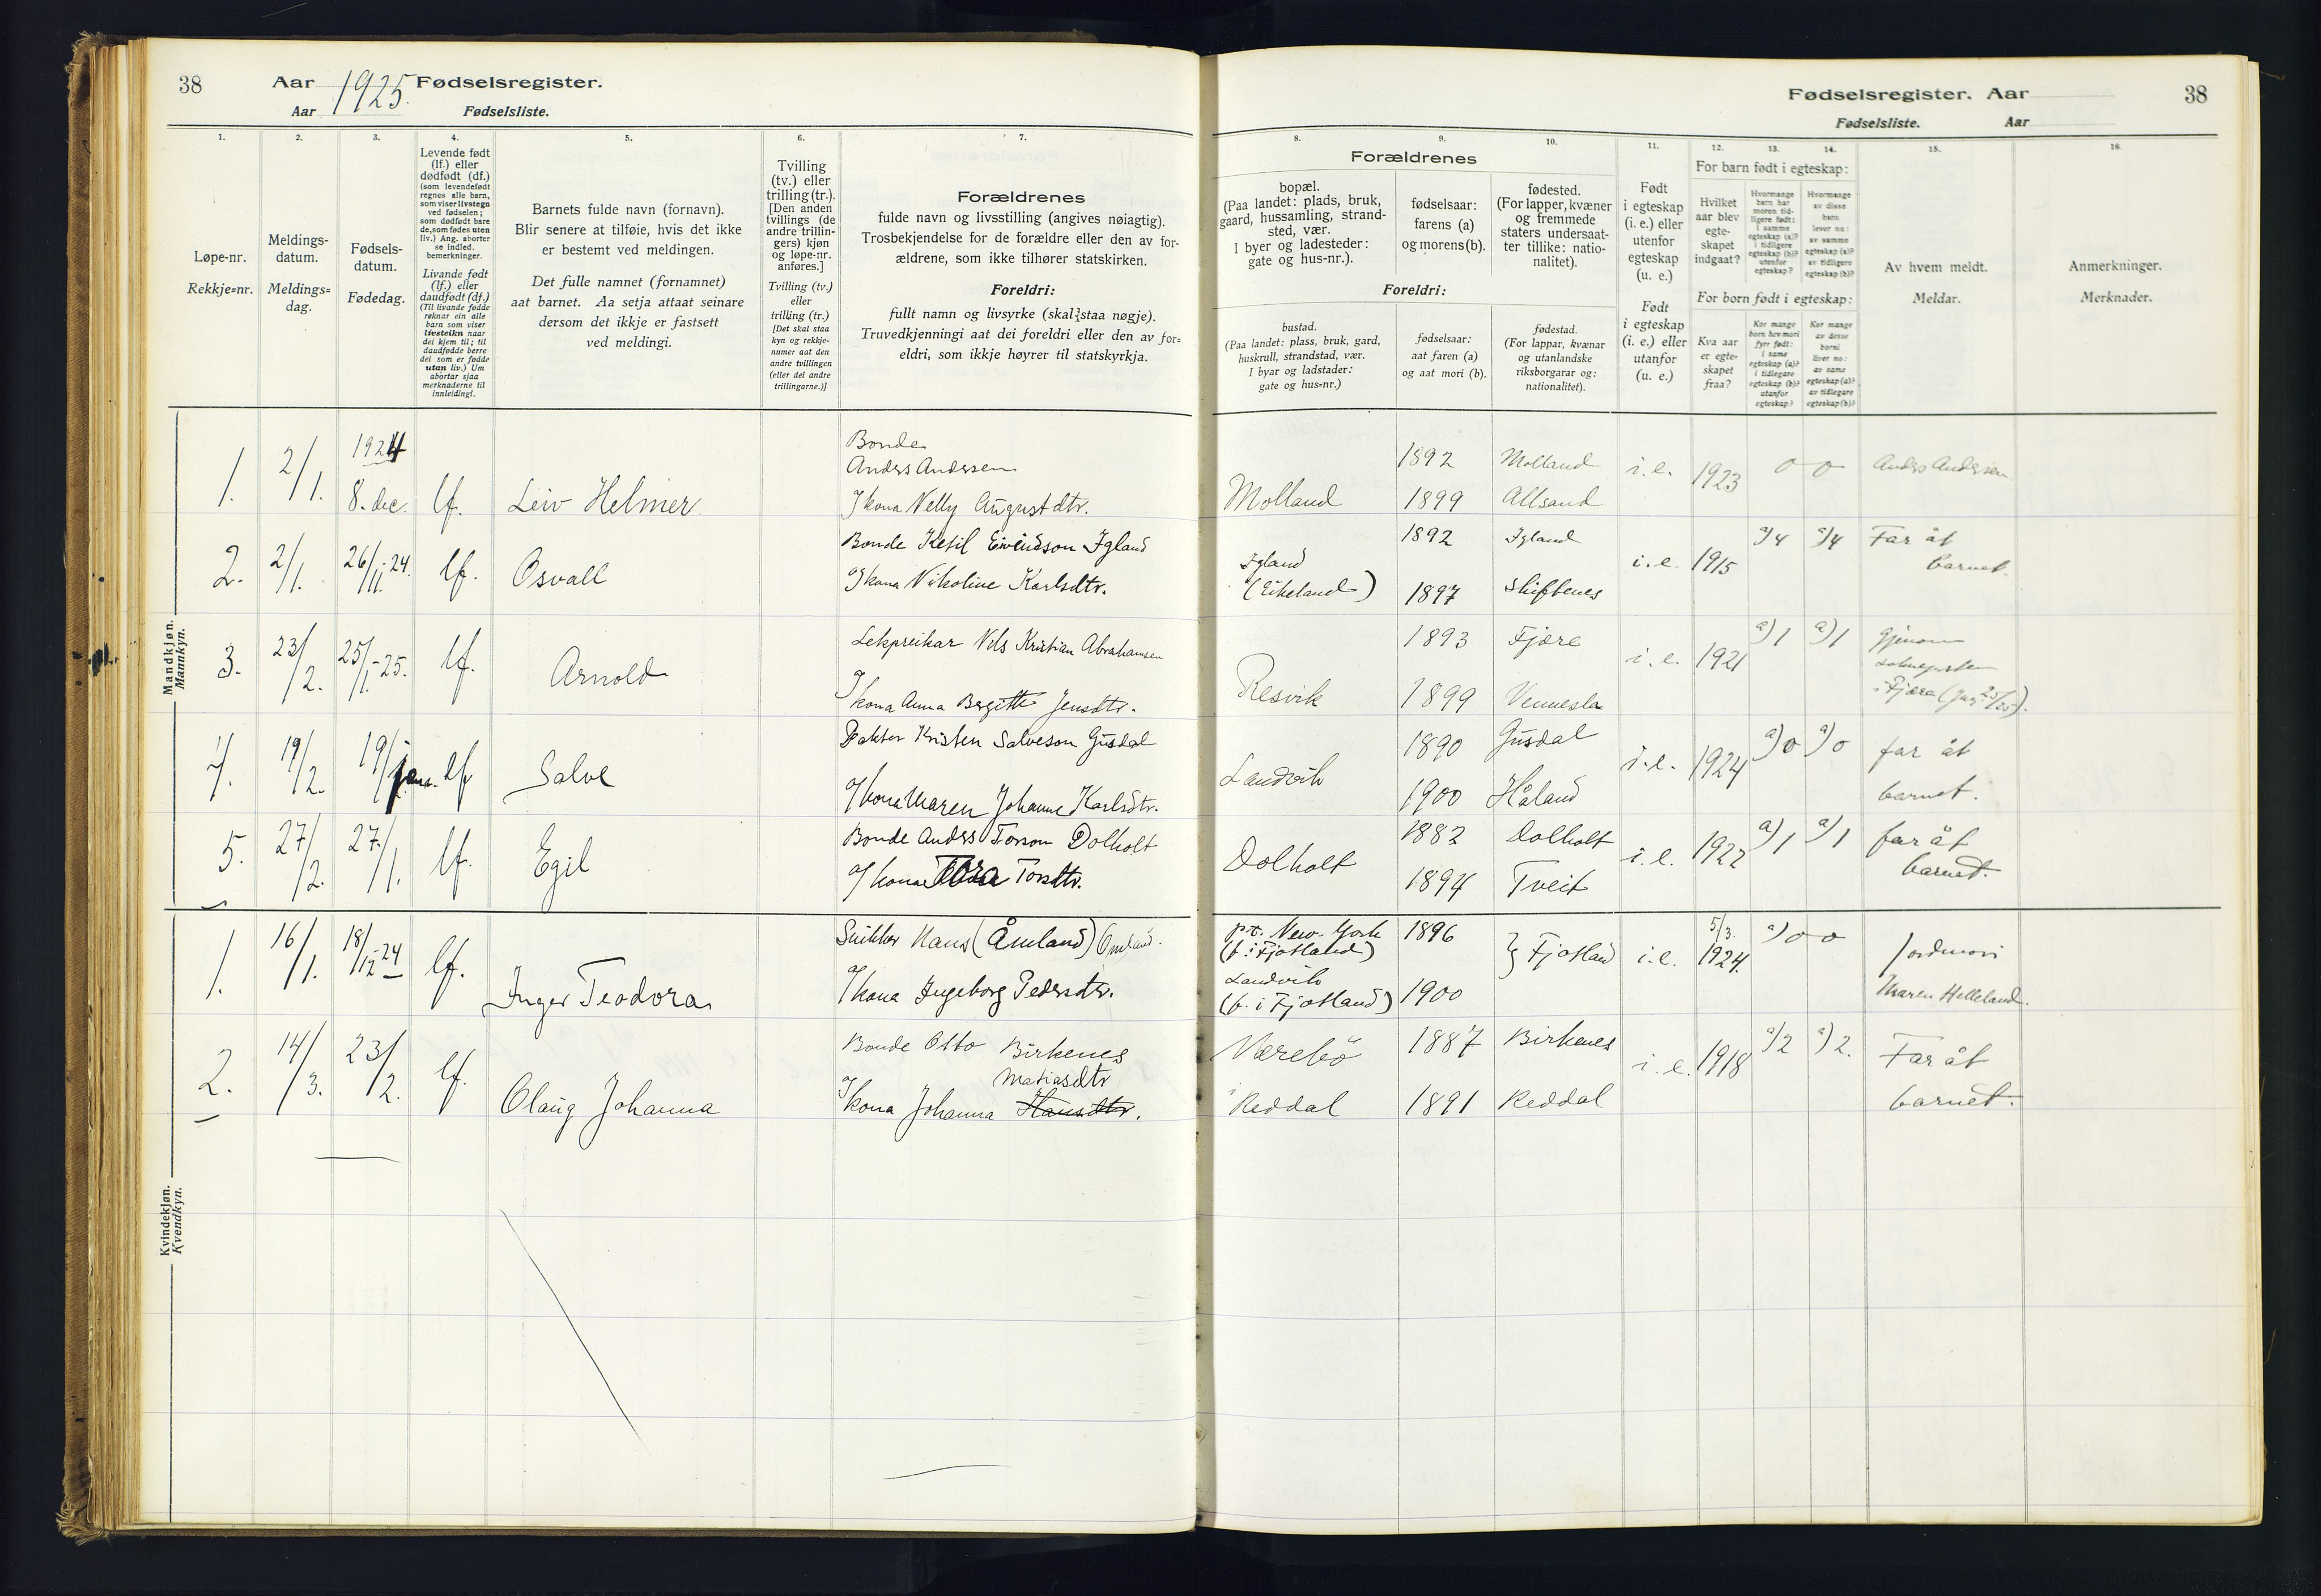 38
Aar 1925. Fødselsregister.
Aar Fødselsliste.
1. 2. 3. 4. 5. 6. 7.
Løpe-nr.
Rekkje=nr.
Meldings-
datum.
Meldings=
dag.
Fødsels-
datum.
Fødedag.
Levende født
(lf.) eller
dødfødt (df.)
(som levendefødt
regnes alle barn,
som viser livstegn
ved fødselen;
som dødfødt bare
de, som fødes uten
liv.) Ang. aborter
se indled.
bemerkninger.
Livande født
(lf.) eller
daudfødt (df.)
(Til livande fødde
reknar ein alle
barn som viser
livsteikn naar
dei kjem til; til
daudfødde berre
dei som er fødde
utan liv.) Um
abortar sjaa
merknaderne til
innleidingi.
Barnets fulde navn (fornavn).
Blir senere at tilføie, hvis det ikke
er bestemt ved meldingen.
Det fulle namnet (fornamnet)
aat barnet. Aa setja attaat seinare
dersom det ikkje er fastsett
ved meldingi.
Tvilling
(tv.) eller
trilling (tr.).
[Den anden
tvillings (de
andre trillin-
gers) kjøn
og løpe-nr.
anføres.]
Tvilling (tv.)
eller
trilling (tr.)
[Det skal staa
kyn og rekkje-
numer aat den
andre tvillingen
(eller dei andre
trillingarne.)]
Forældrenes
fulde navn og livsstilling (angives nøiagtig).
Trosbekjendelse for de forældre eller den av for-
ældrene, som ikke tilhører statskirken.
Foreldri:
fullt namn og livsyrke (skal staa nøgje).
Truvedkjenningi aat dei foreldri eller den av for=
eldri, som ikkje høyrer til statskyrkja.
Mandkjøn.
Mannkyn.
1. 2/1. 1924 8. dec. lf. Leiv Helmer
Bonde
Anders Andersen
og kona Nelly Augustdtr.
2. 2/1. 26/11.-24. lf. Osvall
Bonde Ketil Eivindson Igland
og kona Nikoline Karlsdtr.
3. 23/2. 25/1.-25. lf. Arnold
Lekpreikar Nils Kristian Abrahamsen
og kona Anna Bergitte Jensdtr.
4. 19/2. 19/jan. lf Salve
Dakter Kristen Salveson Gusdal
og kona Maren Johanne Karlsdtr.
5. 27/2. 27/1. lf. Egil
Bonde Anders Torson Dolholt
og kona Tora Torsdtr.
Kvindekjøn.
Kvendkyn.
1. 16/1. 18/12-24 lf. Inger Teodora
Snikker Hans (Åmland) Omland.
og kona Ingeborg Pedersdtr.
2. 14/3. 23/2. lf. Olaug Johanna
Bonde Otto Birkenes
Matiasdtr
og kona Johanna Hansdtr.
Fødselsregister. Aar
38
Fødselsliste. Aar
8. 9. 10. 11. 12. 13. 14. 15. 16.
Forældrenes
bopæl.
(Paa landet: plads, bruk,
gaard, hussamling, strand-
sted, vær.
I byer og ladesteder:
gate og hus-nr.).
fødselsaar:
farens (a)
og morens (b).
fødested.
(For lapper, kvæner
og fremmede
staters undersaat-
ter tillike: natio-
nalitet).
Foreldri:
bustad.
(Paa landet: plass, bruk, gard,
huskrull, strandstad, vær.
I byar og ladstader:
gate og hus=nr.)
fødselsaar:
aat faren (a)
og aat mori (b).
fødestad.
(For lappar, kvænar
og utanlandske
riksborgarar og:
nationalitet).
Født
i egteskap
(i. e.) eller
utenfor
egteskap
(u. e.)
Født
i egteskap
(i. e.) eller
utanfor
(u. e.)
For barn født i egteskap:
Hvilket
aar blev
egte-
skapet
indgaat?
Hvormange
barn har
moren tid-
ligere født:
i samme
egteskap (a)?
i tidligere
egteskap (b)?
utenfor
egteskap?
Hvormange
av disse
barn
lever nu:
av samme
egteskap (a)?
av tidligere
egteskap (b)?
For born født i egteskap:
Kva aar
er egte-
skapet
fraa?
Kor mange
born hev mori
fyrr født:
i same
egteskap (a)?
i tidlegare
egteskap (b)?
utanfor
egteskap?
Kor mange
av desse
borni
liver no:
av same
egteskap (a)?
av tidlegare
egteskap (b)?
Av hvem meldt.
Meldar.
Anmerkninger.
Merknader.
Molland 1892 Molland i.e. 1923 0 0 Anders Andersen
1899 Allsand
Igland 1892 Igland i.e. 1915 a/4 a/4 Far åt
(Eikeland) 1897 Skiftenes barnet.
Resvik 1893 Fjære i.e. 1921 a)1 a)1 Gjenom
1899 Vennesla
i Fjære
Landvik 1890 Gusdal i.e. 1924 a)0 a)0 far åt
1900 Håland barnet.
Dolholt 1882 Dolholt i.e. 1922 a)1 a)1 far åt
1894 Tveit barnet.
p.t. New-York 1896 } Fjotland i.e. 5/3. 1924. a)0 0 Jordmori
(f. i Fjotland)
Landvik 1900 Maren Helleland.
(f. i Fjotland)
Værebö 1887 Birkenes i.e. 1918 a)2 a)2. Far åt
i Reddal 1891 Reddal barnet.